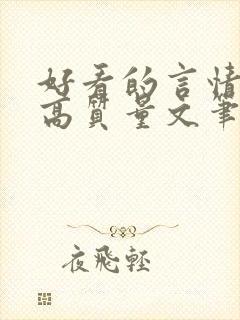 好看的言情
高质量文笔
夜飛輕